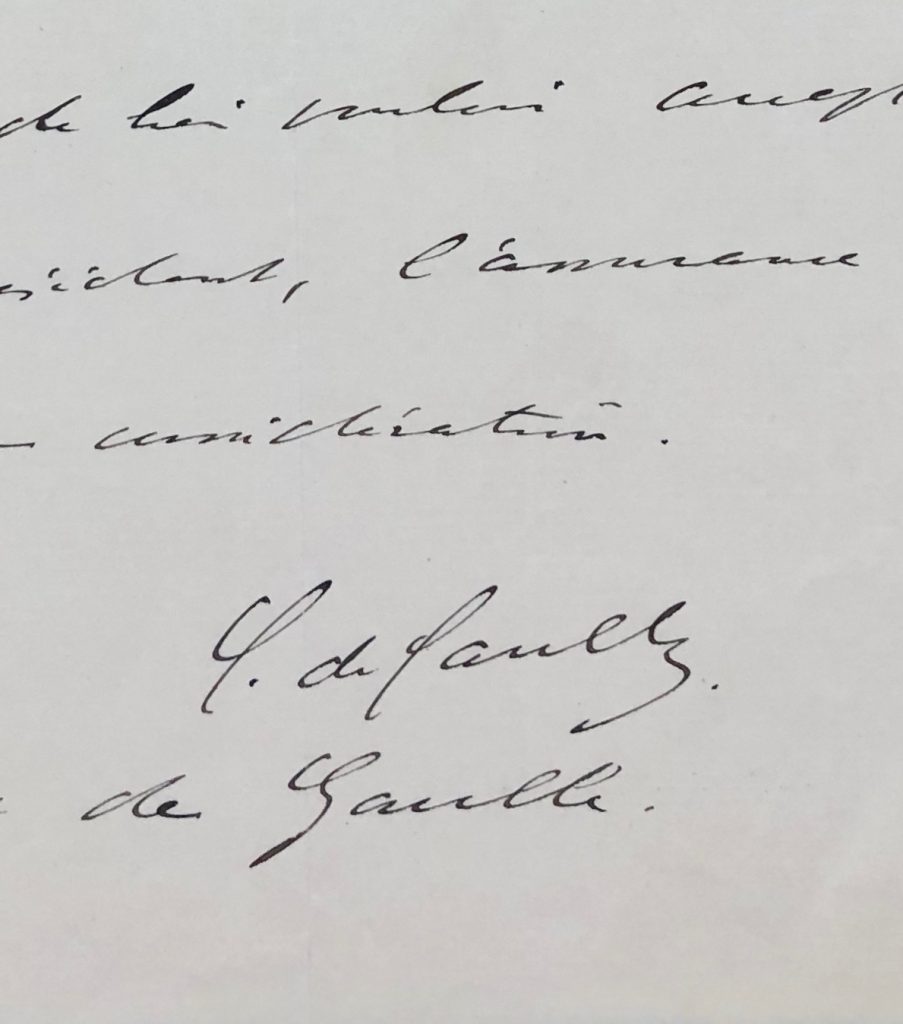 de bien vouloir accep
ésident, l'assurance
considération.
C. de Gaulle.
de Gaulle.